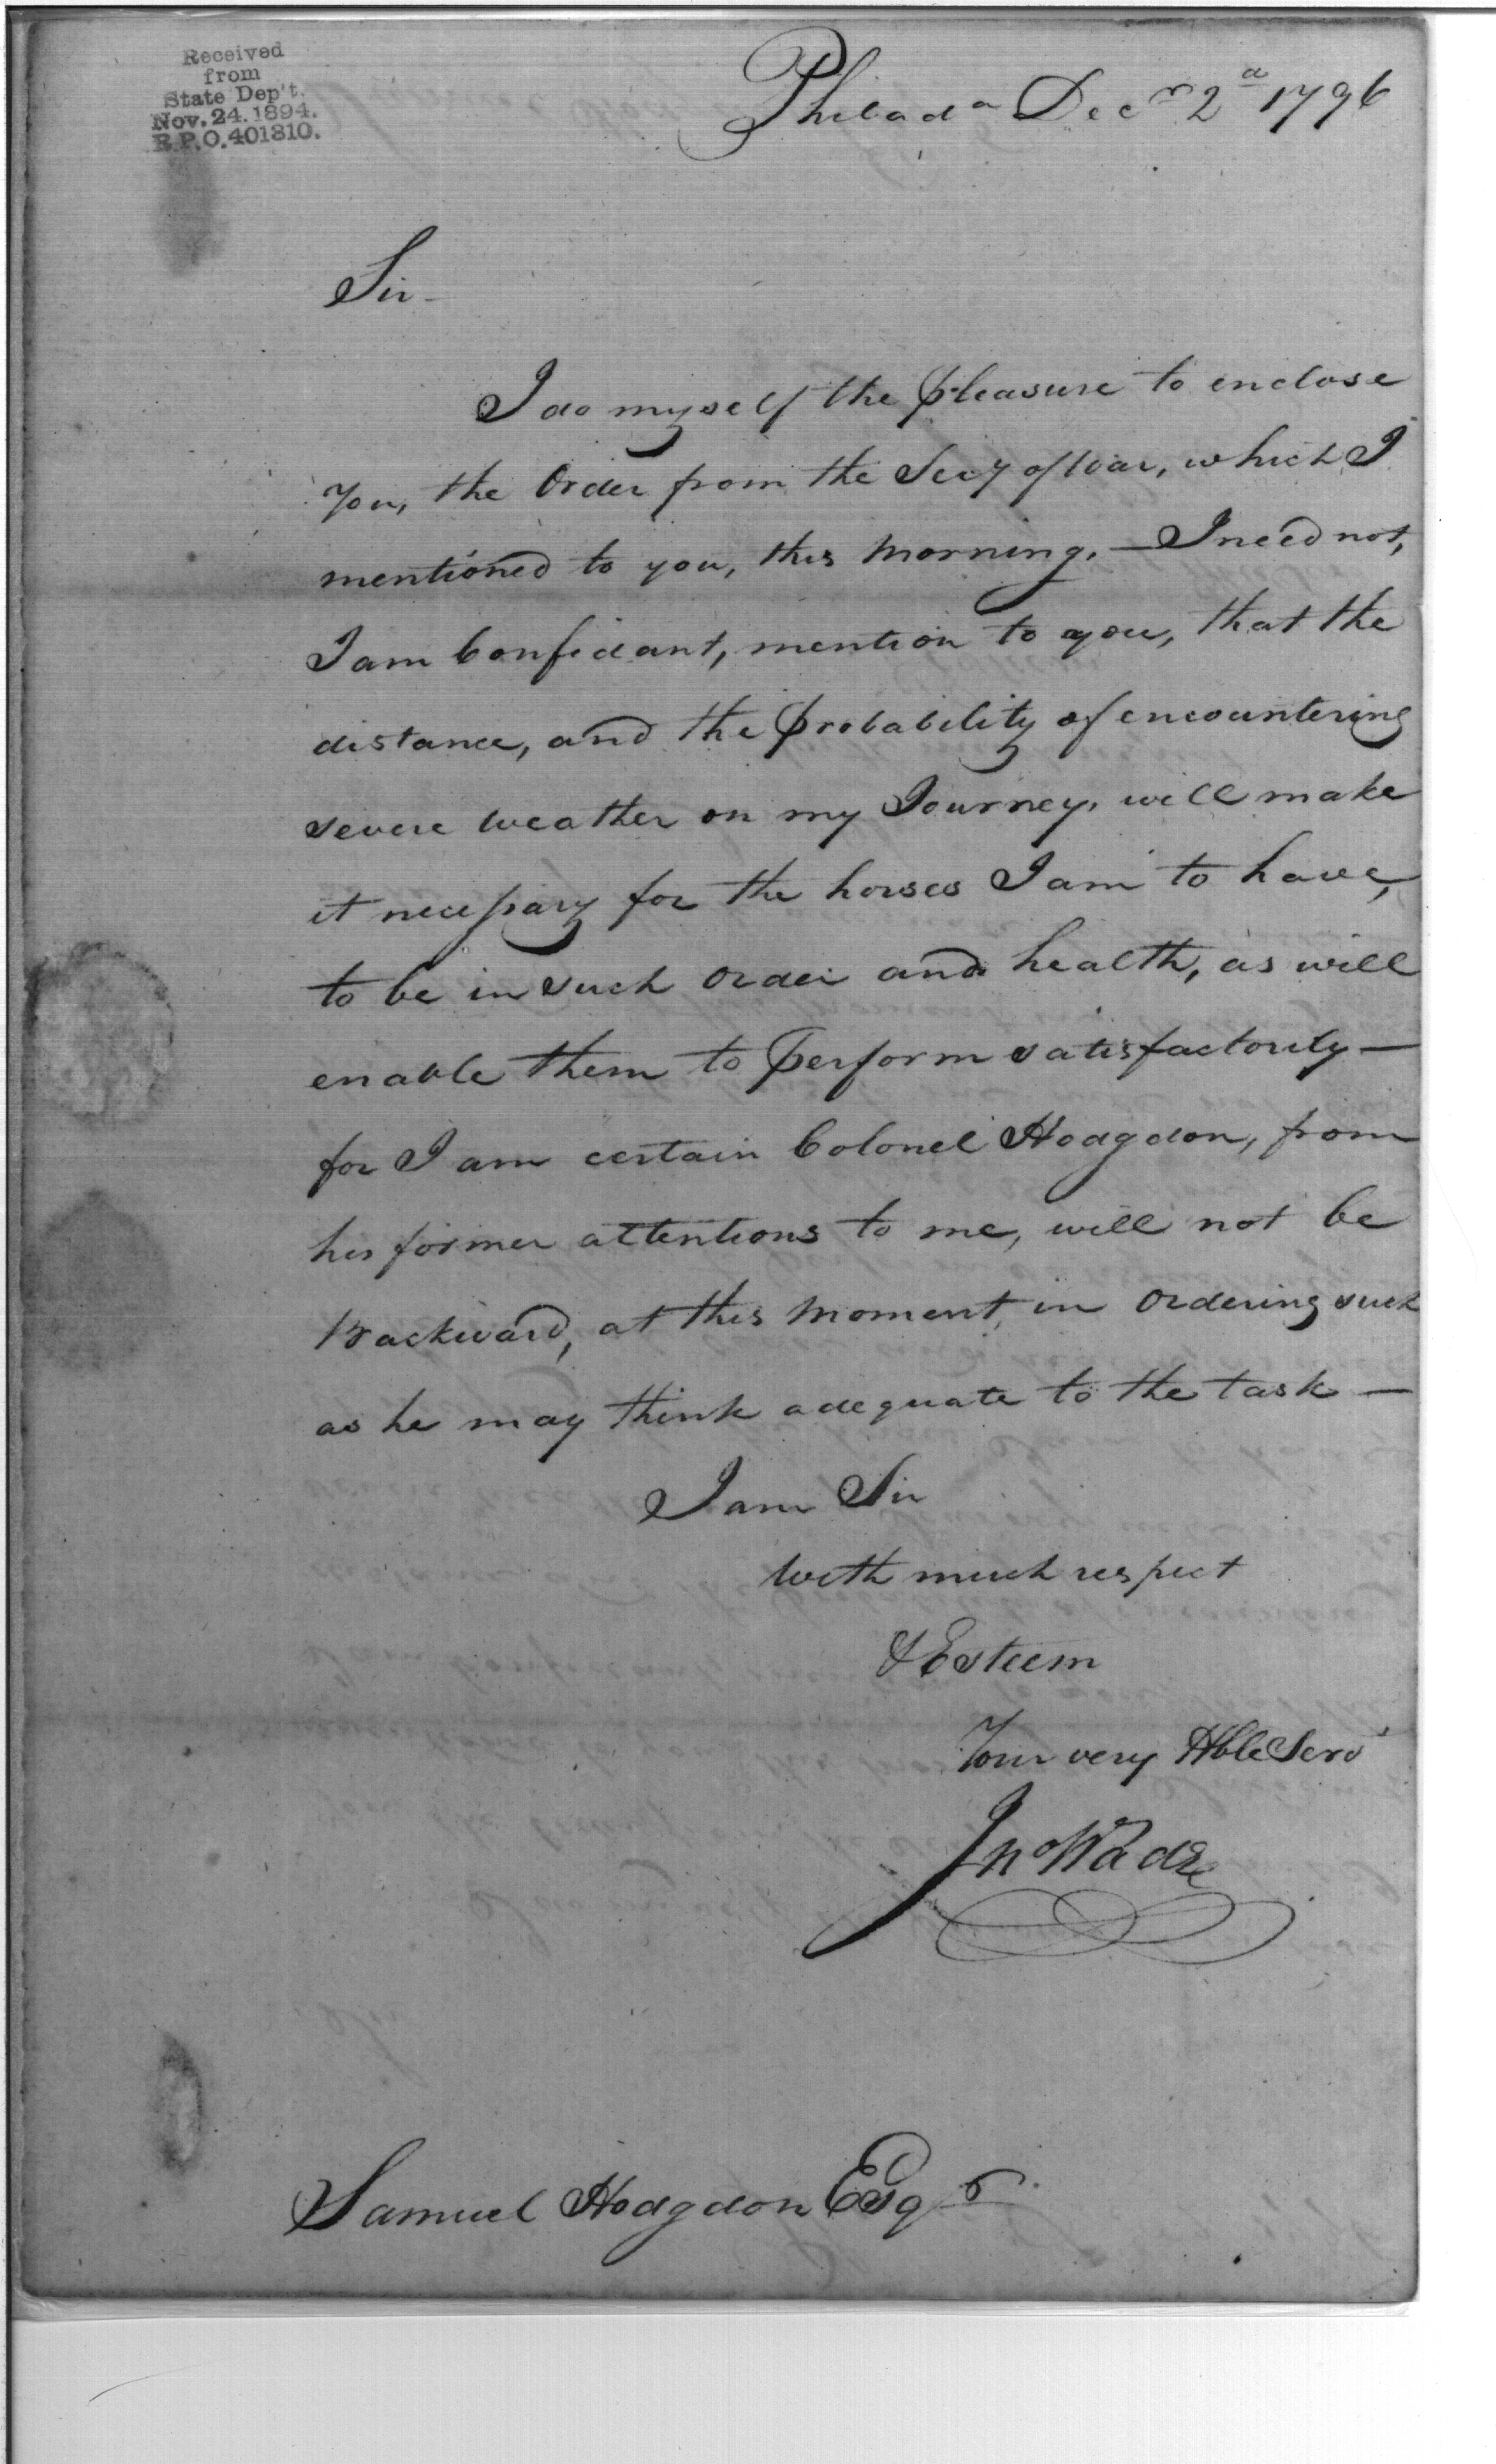 Received
from
State Dep't.
Nov. 24. 1894.
R.P.O. 401310.
Philada Decr 2d 1796
Sir-
I do myself the pleasure to enclose
You, the Order from the Secy of War, which I
mentioned to you, this Morning. — I need not,
I am Confidant, mention to you, that the
distance, and the probability of encountering
severe weather on my Journey, will make
it necessary for the horses I am to have,
to be in such Order and health, as will
enable them to perform satisfactorily —
for I am certain Colonel Hodgdon, from
his former attentions to me, will not be
Backward, at this Moment, in Ordering such
as he may think adequate to the task —
I am Sir
With much respect
& Esteem
Your very Hble Servt
Jno Wade
Samuel Hodgdon Esqr